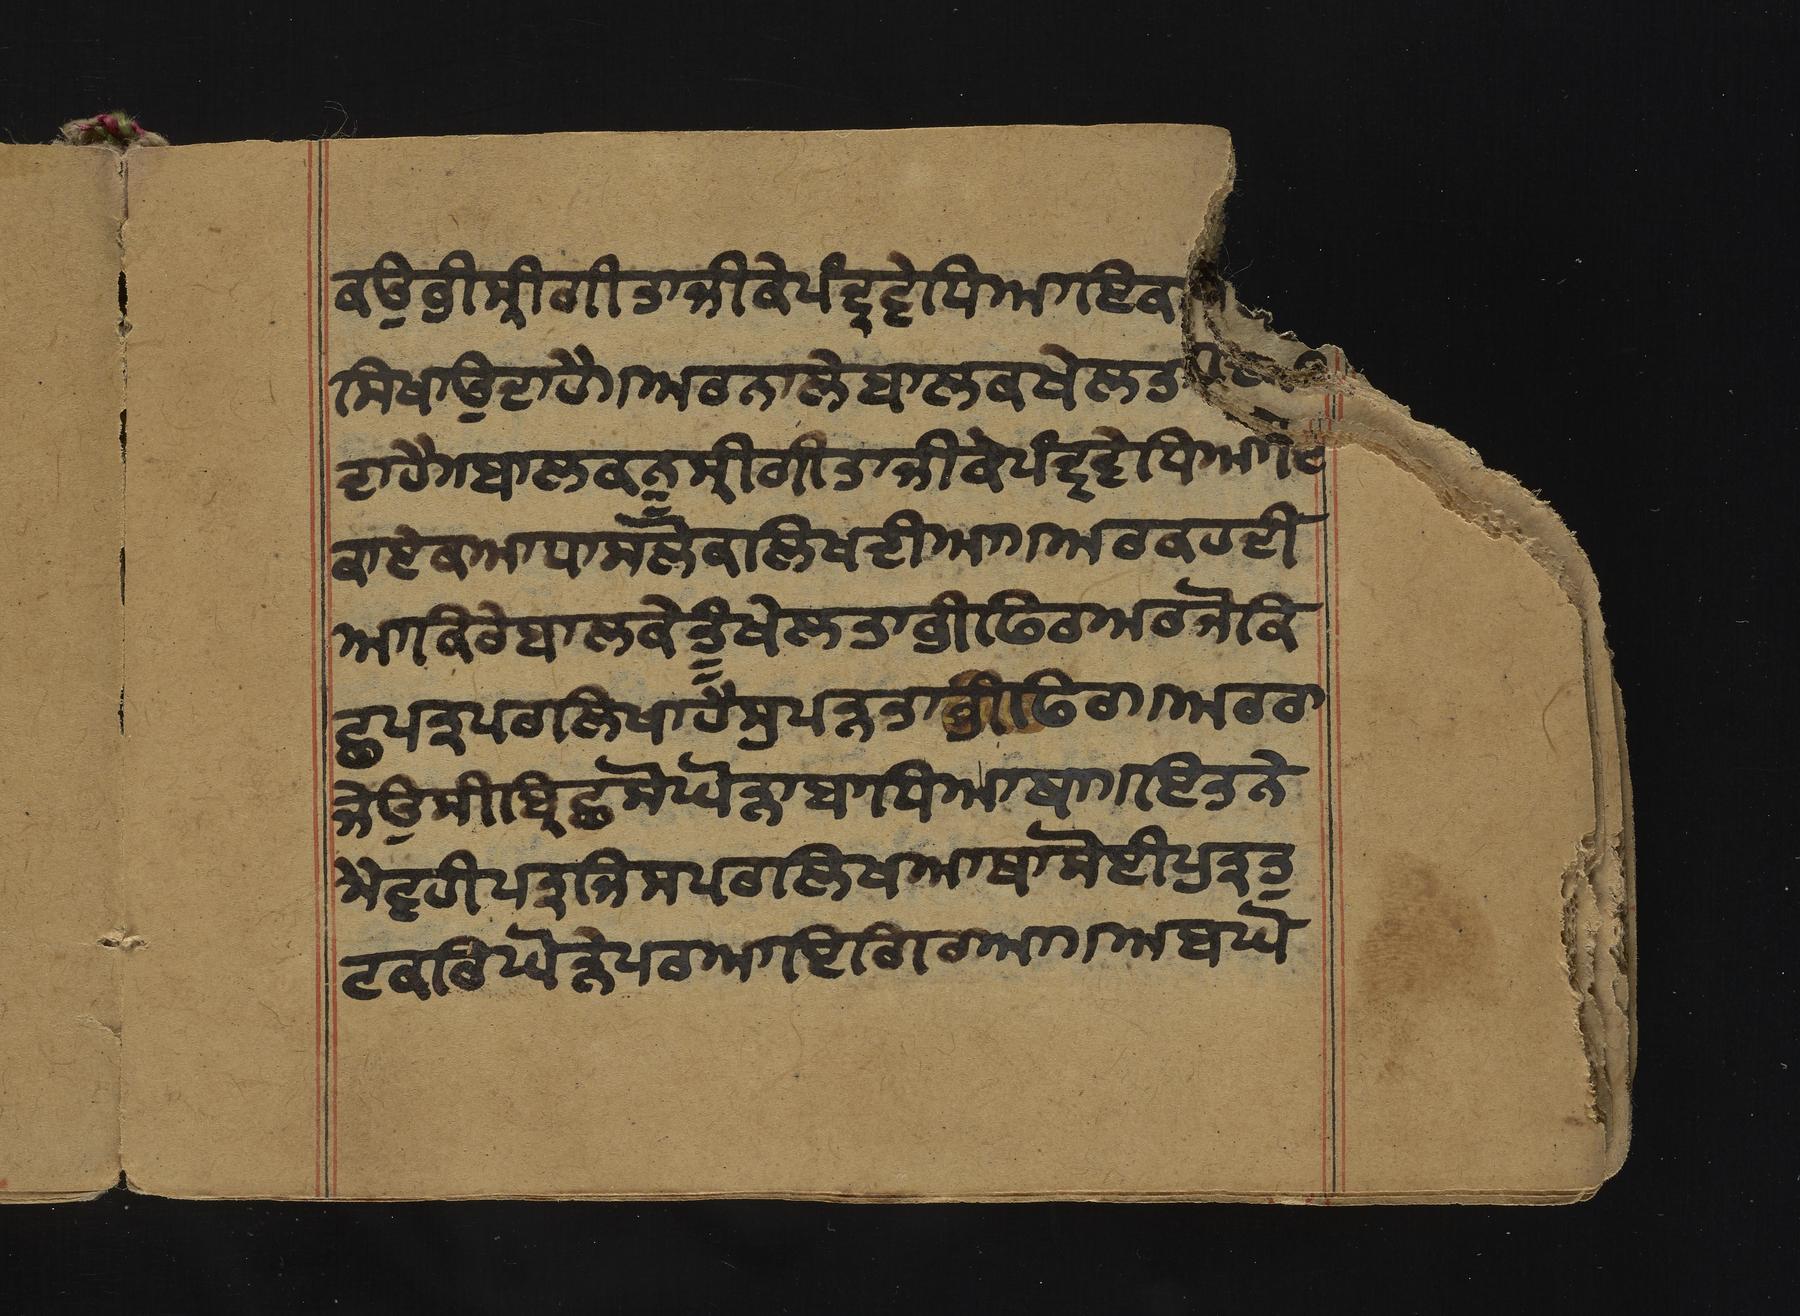 ਕਉ ਭੀ ਸ੍ਰੀ ਗੀਤਾ ਜੀ ਕੇ ਪੰਦ੍ਰ੍ਵੇ ਧਿਆਇ ਕ
ਸਿਖਾਉਦਾ ਹੈ। ਅਰ ਨਾਲੇ ਬਾਲਕ ਖੇਲਤਾ
ਦਾ ਹੈ। ਬਾਲਕ ਨੂ ਸ੍ਰੀ ਗੀਤਾ ਜੀ ਕੇ ਪੰਦ੍ਰਵੇ ਧਿਆਇ
ਕਾ ਏਕ ਆਧਾ ਸਲੋਕ ਲਿਖ ਦੀਆ। ਅਰ ਕਹ ਦੀ
ਆ ਕਿ ਰੇ ਬਾਲਕੇ ਤੂੰ ਖੇਲਤਾ ਭੀ ਫਿਰ ਅਰ ਜੋ ਕਿ
ਛੁ ਪਤ੍ਰ ਪਰ ਲਿਖਾ ਹੈ ਸੁ ਪੜਤਾ ਭੀ ਫਿਰ। ਅਰ ਰਾ
ਜੇ ਉਸੀ ਬ੍ਰਿਛ ਸੋ ਘੋੜਾ ਬਾਧਿਆ ਥਾ। ਇਤਨੇ
ਮੈ ਵ੍ਹੀ ਪਤ੍ਰ ਜਿਸ ਪਰ ਲਿਖਆ ਥਾ ਸੋਈ ਪਤ੍ਰ ਤੁ
ਟ ਕਰਿ ਘੋੜੇ ਪਰ ਆਇ ਗਿਰਆ। ਅਬ ਘੋ